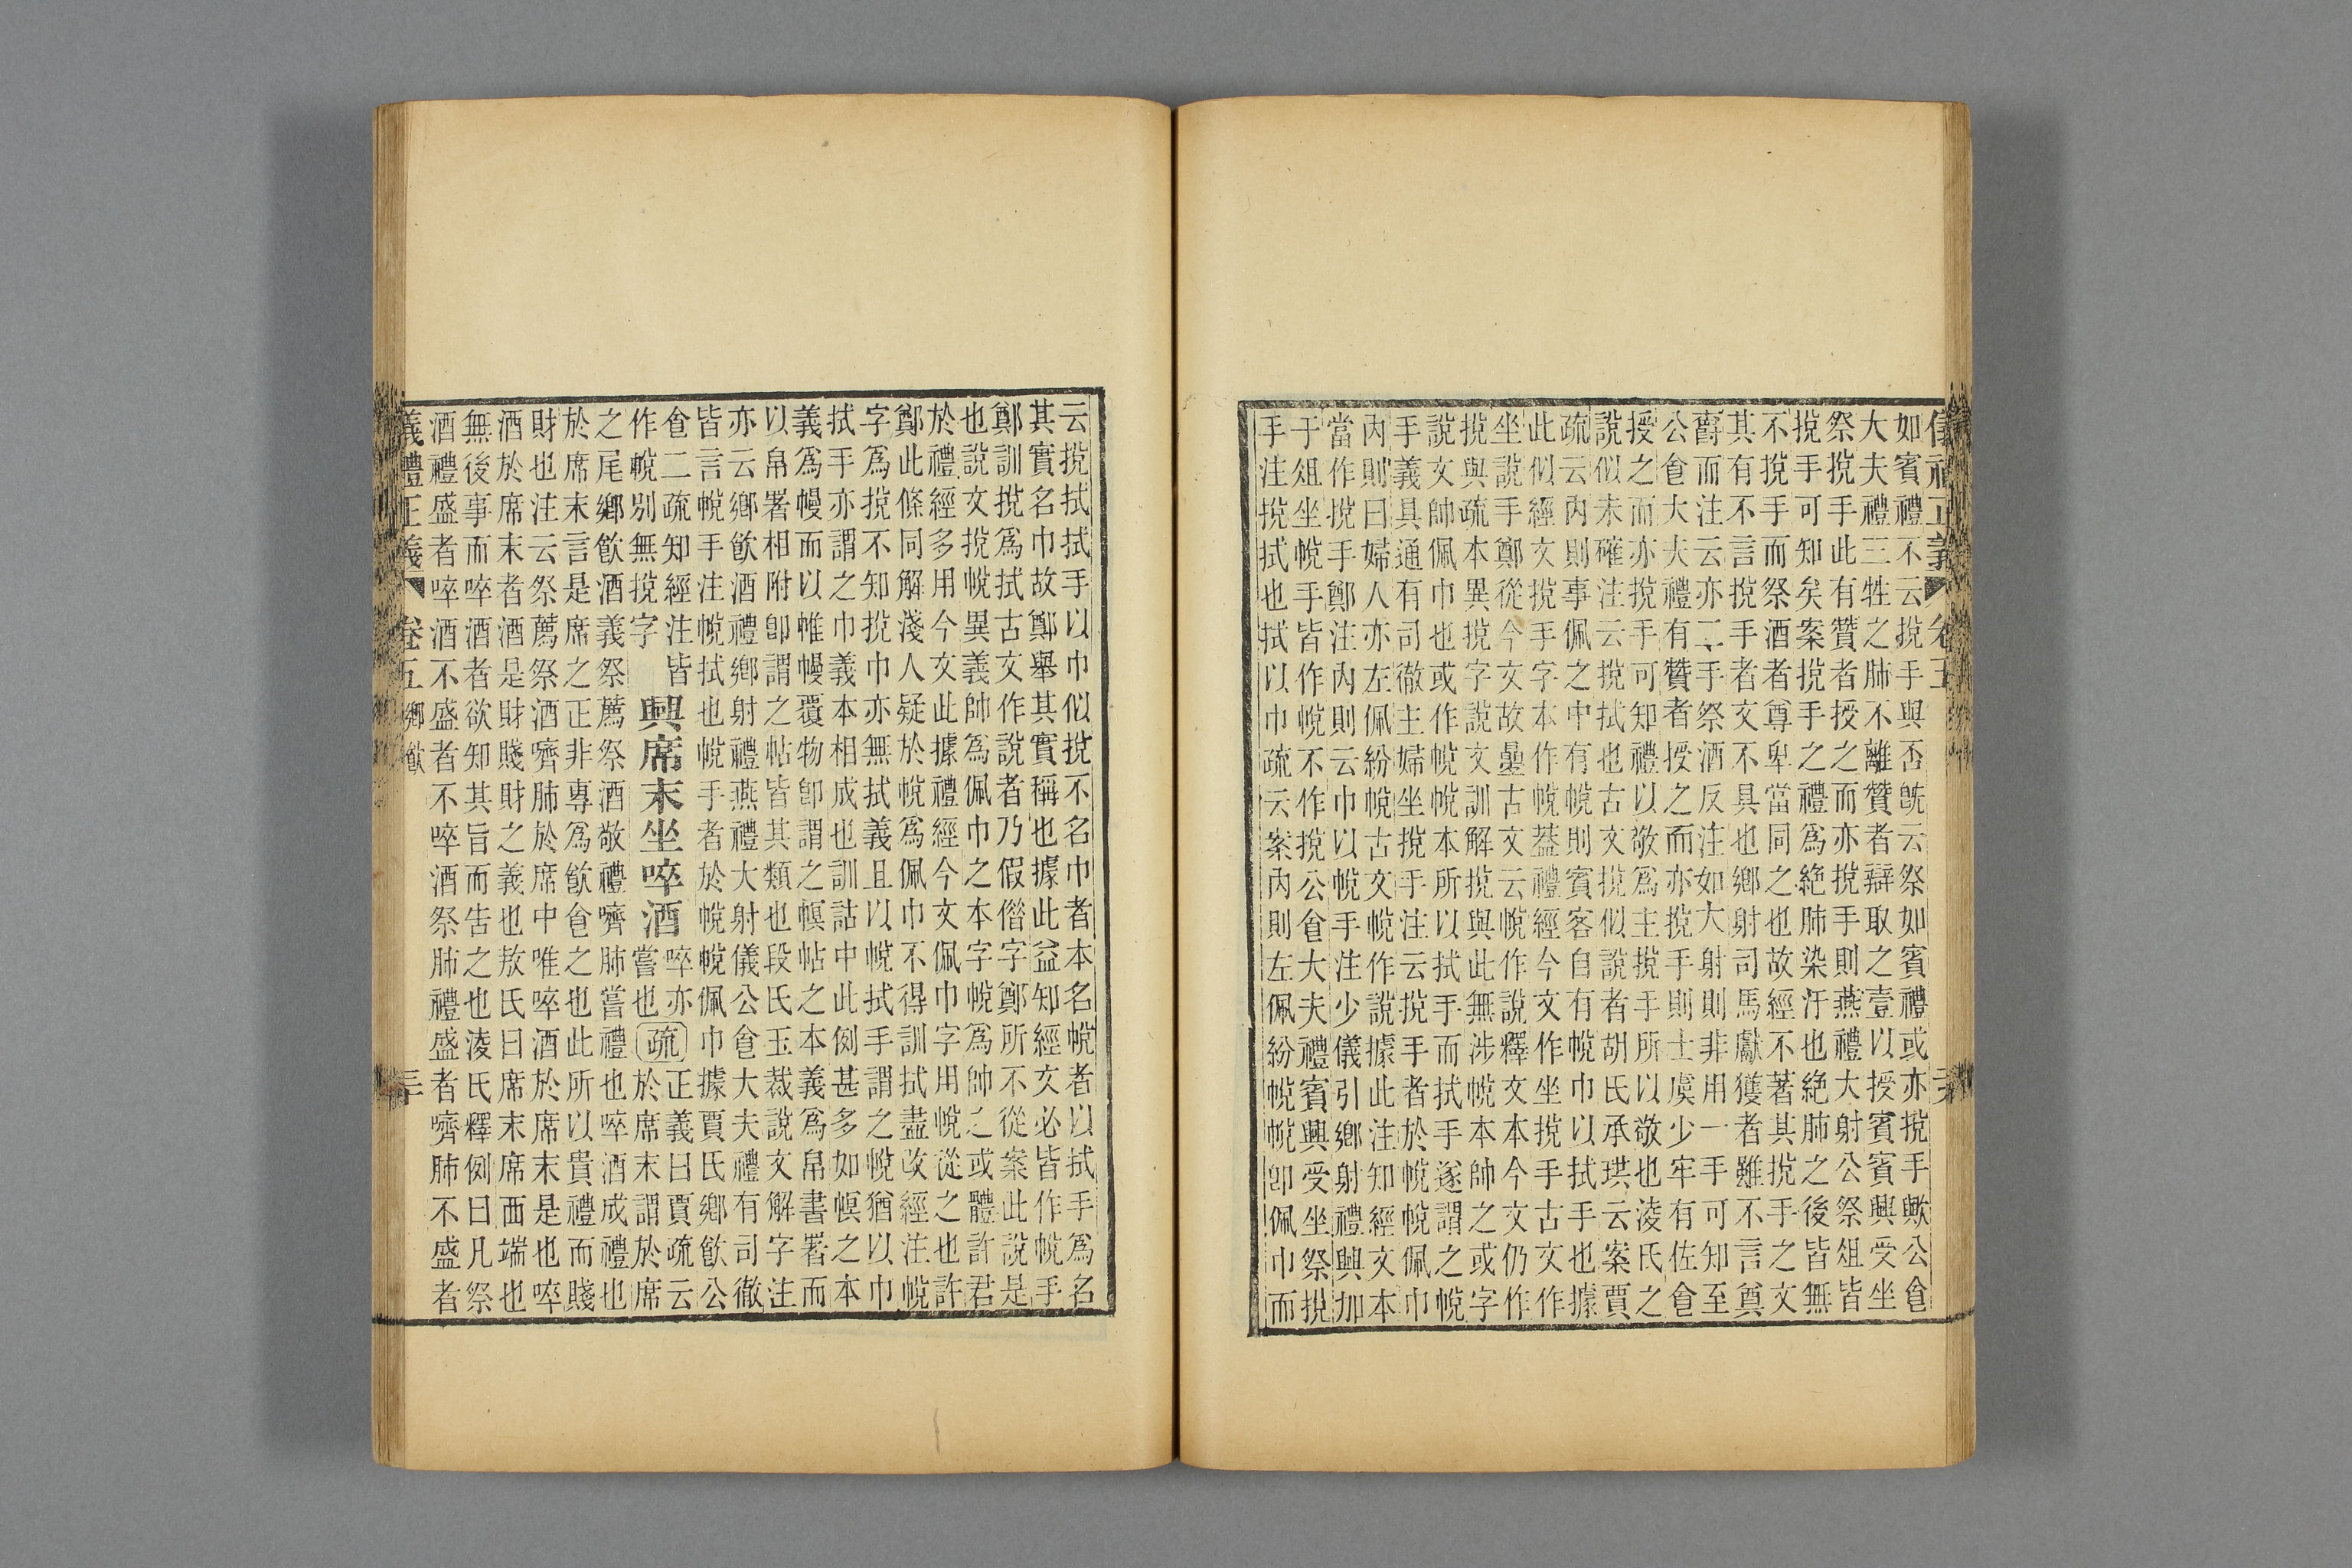 儀禮正義 卷五
如賓禮不云挩手與否旣云祭如賓禮或亦挩手歟公食
大夫禮三牲之肺不離贊者辯取之壹以授賓賓興受坐
祭挩手此有贊者授之而亦挩手則燕禮大射公祭俎皆
挩手可知矣案挩手之禮爲絶肺染汙也絶肺之後皆無
不挩手而祭酒者尊卑當同之也故經不著其挩手之文
其有不言挩手者文不具也鄉射司馬獻獲者雖不言奠
爵而注云亦二手祭酒反注如大射則非用一手可知至
公食大夫禮有贊者授之而亦挩手則士虞少牢有佐食
授之而亦挩手可知禮以敬爲主挩手所以敬也淩氏之
說似未確注云挩拭也古文挩似說者胡氏承珙云案賈
疏云內則事佩之中有帨則賓客自有帨巾以拭手也據
此似經文挩手字本作帨葢禮經今文作坐挩手古文作
坐說手鄭從今文故疊古文云帨作說釋文本今文仍作
挩與疏本異挩字說文訓解挩與此無涉帨本帥之或字
說文帥佩巾也或作帨帨本所以拭手而拭手遂謂之帨
手義具通有司徹主婦坐挩手注云挩手者於帨帨佩巾
內則曰婦人亦左佩紛帨古文帨作說據此注知經文本
當作挩手鄭注內則云巾以帨手注少儀引鄉射禮興加
于俎坐帨手皆作帨不作挩公食大夫禮賓興受坐祭挩
手注挩拭也拭以巾疏云案內則左佩紛帨帨卽佩巾而
云挩拭拭手以巾似挩不名巾者本名帨者以拭手爲名
其實名巾故鄭舉其實稱也據此益知經文必皆作帨手
鄭訓挩爲拭古文作說者乃假借字鄭所不從案此說是
也說文挩帨異義帥爲佩巾之本字帨爲帥之或體許君
於禮經多用今文此據禮經今文佩巾字用帨從之也許
鄭此條同解淺人疑於帨爲佩巾不得訓拭盡改經注帨
字爲挩不知挩巾亦無拭義且以帨拭手謂之帨猶以巾
拭手亦謂之巾義本相成也訓詁中此例甚多如幎之本
義爲幔而以帷幔覆物卽謂之幎帖之本義爲帛書署而
以帛署相附卽謂之帖皆其類也段氏玉裁說文解字注
亦云鄉飮酒禮鄉射禮燕禮大射儀公食大夫禮有司徹
皆言帨手注帨拭也帨手者於帨帨佩巾據賈氏鄉飮公
食二疏知經注皆
作帨別無挩字
興席末坐啐酒
啐亦
嘗也
疏
正義曰賈疏云
於席末謂於席
之尾鄉飮酒義祭薦祭酒敬禮嚌肺嘗禮也啐酒成禮也
於席末言是席之正非專爲飮食之也此所以貴禮而賤
財也注云祭薦祭酒嚌肺於席中唯啐酒於席末是也啐
酒於席末者酒是財賤財之義也敖氏曰席末席西端也
無後事而啐酒者欲知其旨而告之也淩氏釋例曰凡祭
酒禮盛者啐酒不盛者不啐酒祭肺禮盛者嚌肺不盛者
儀禮正義 卷五 鄉飮 三